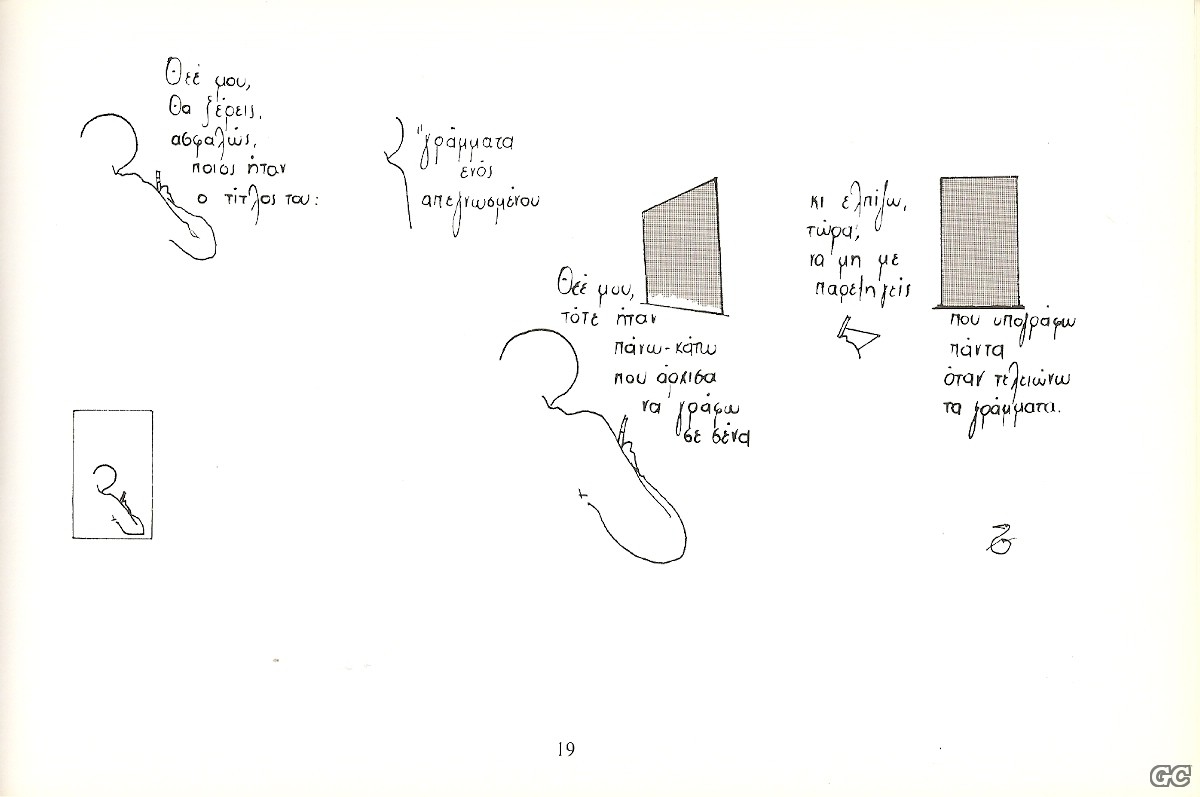 Θεέ μου,
θα ξέρεις,
ασφαλώς,
ποιος ήταν
ο τίτλος του:
"γράμματα
ενός
απεγνωσμένου
Θεέ μου,
τότε ήταν
πάνω-κάτω
που άρχισα
να γράφω
σε σένα
κι ελπίζω,
τώρα,
να μη με
παρεξηγείς
που υπογράφω
πάντα
όταν τελειώνω
τα γράμματα.
19
GC